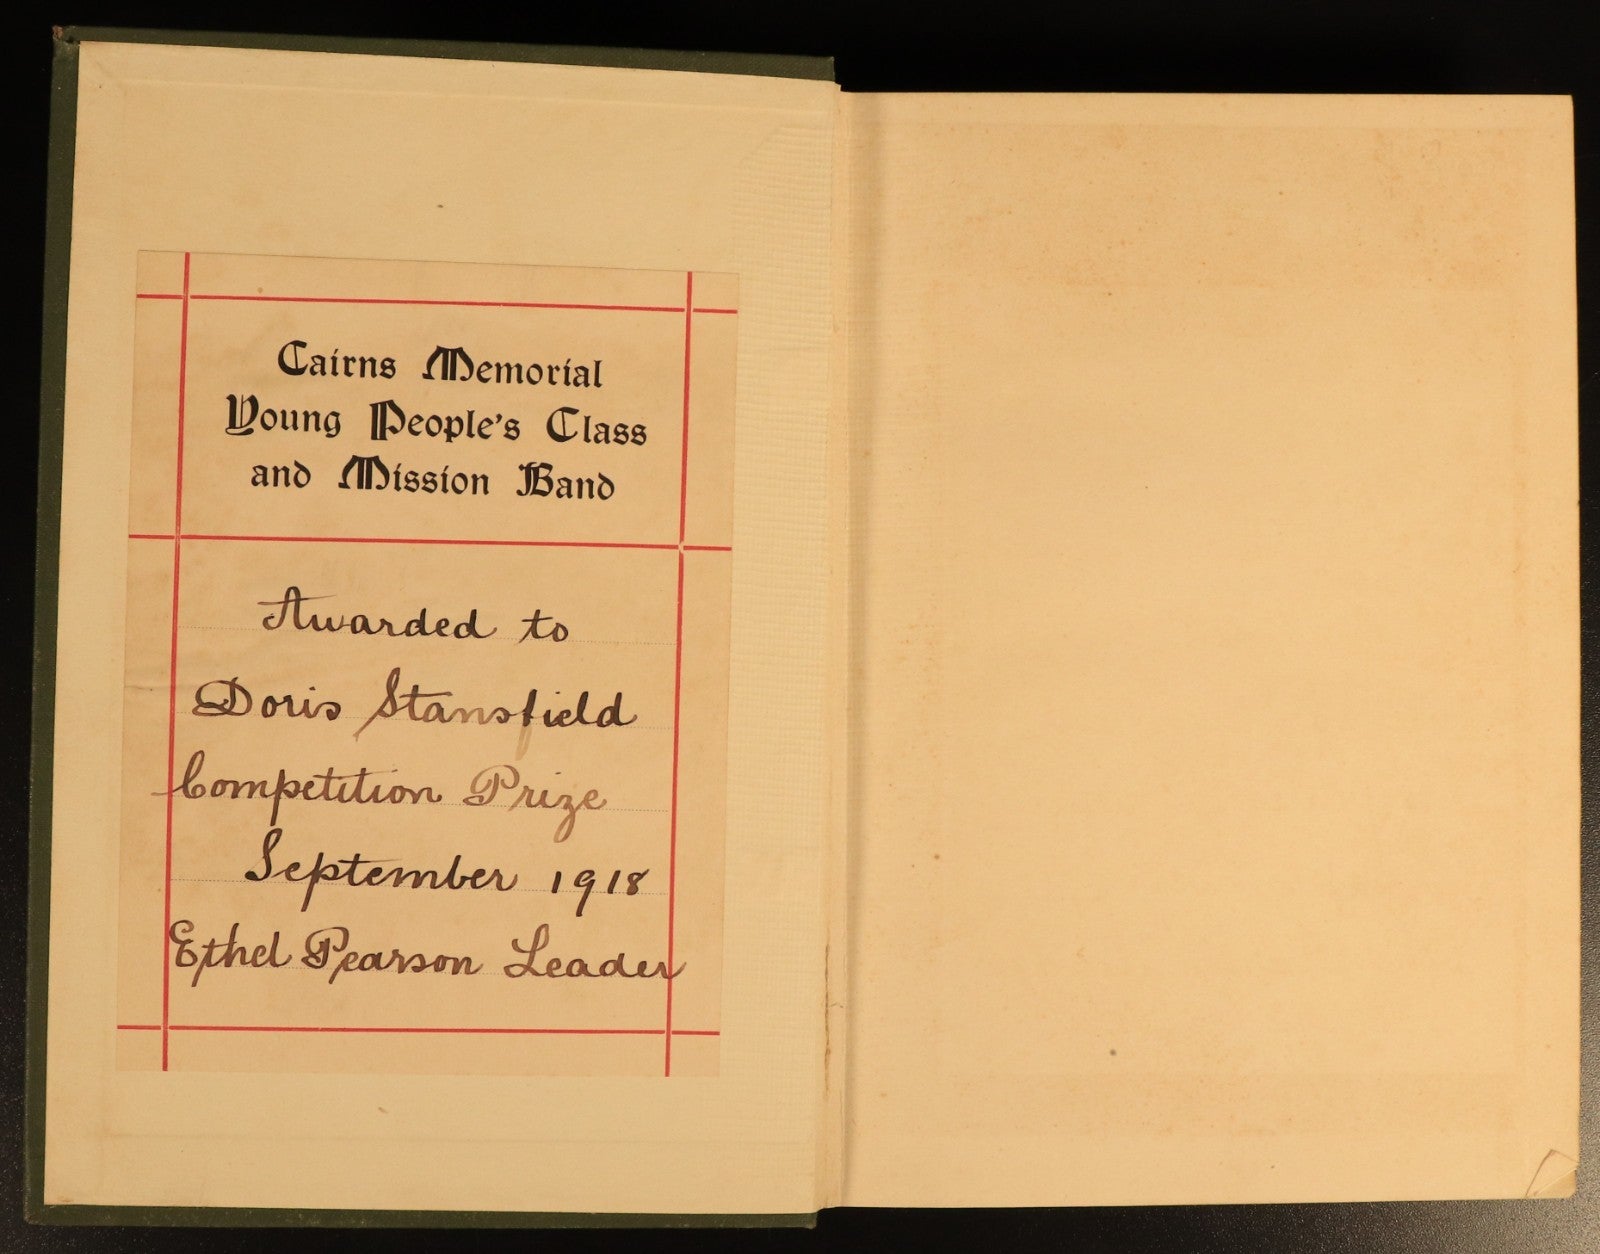 Cairns Memorial
Young People's Class
and Mission Band
Awarded to
Doris Stansfield
Competition Prize
September 1918
Ethel Pearson Leader